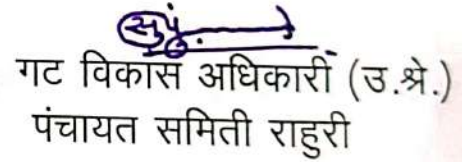 गट विकास अधिकारी (उ.श्रे.)
पंचायत समिती राहुरी